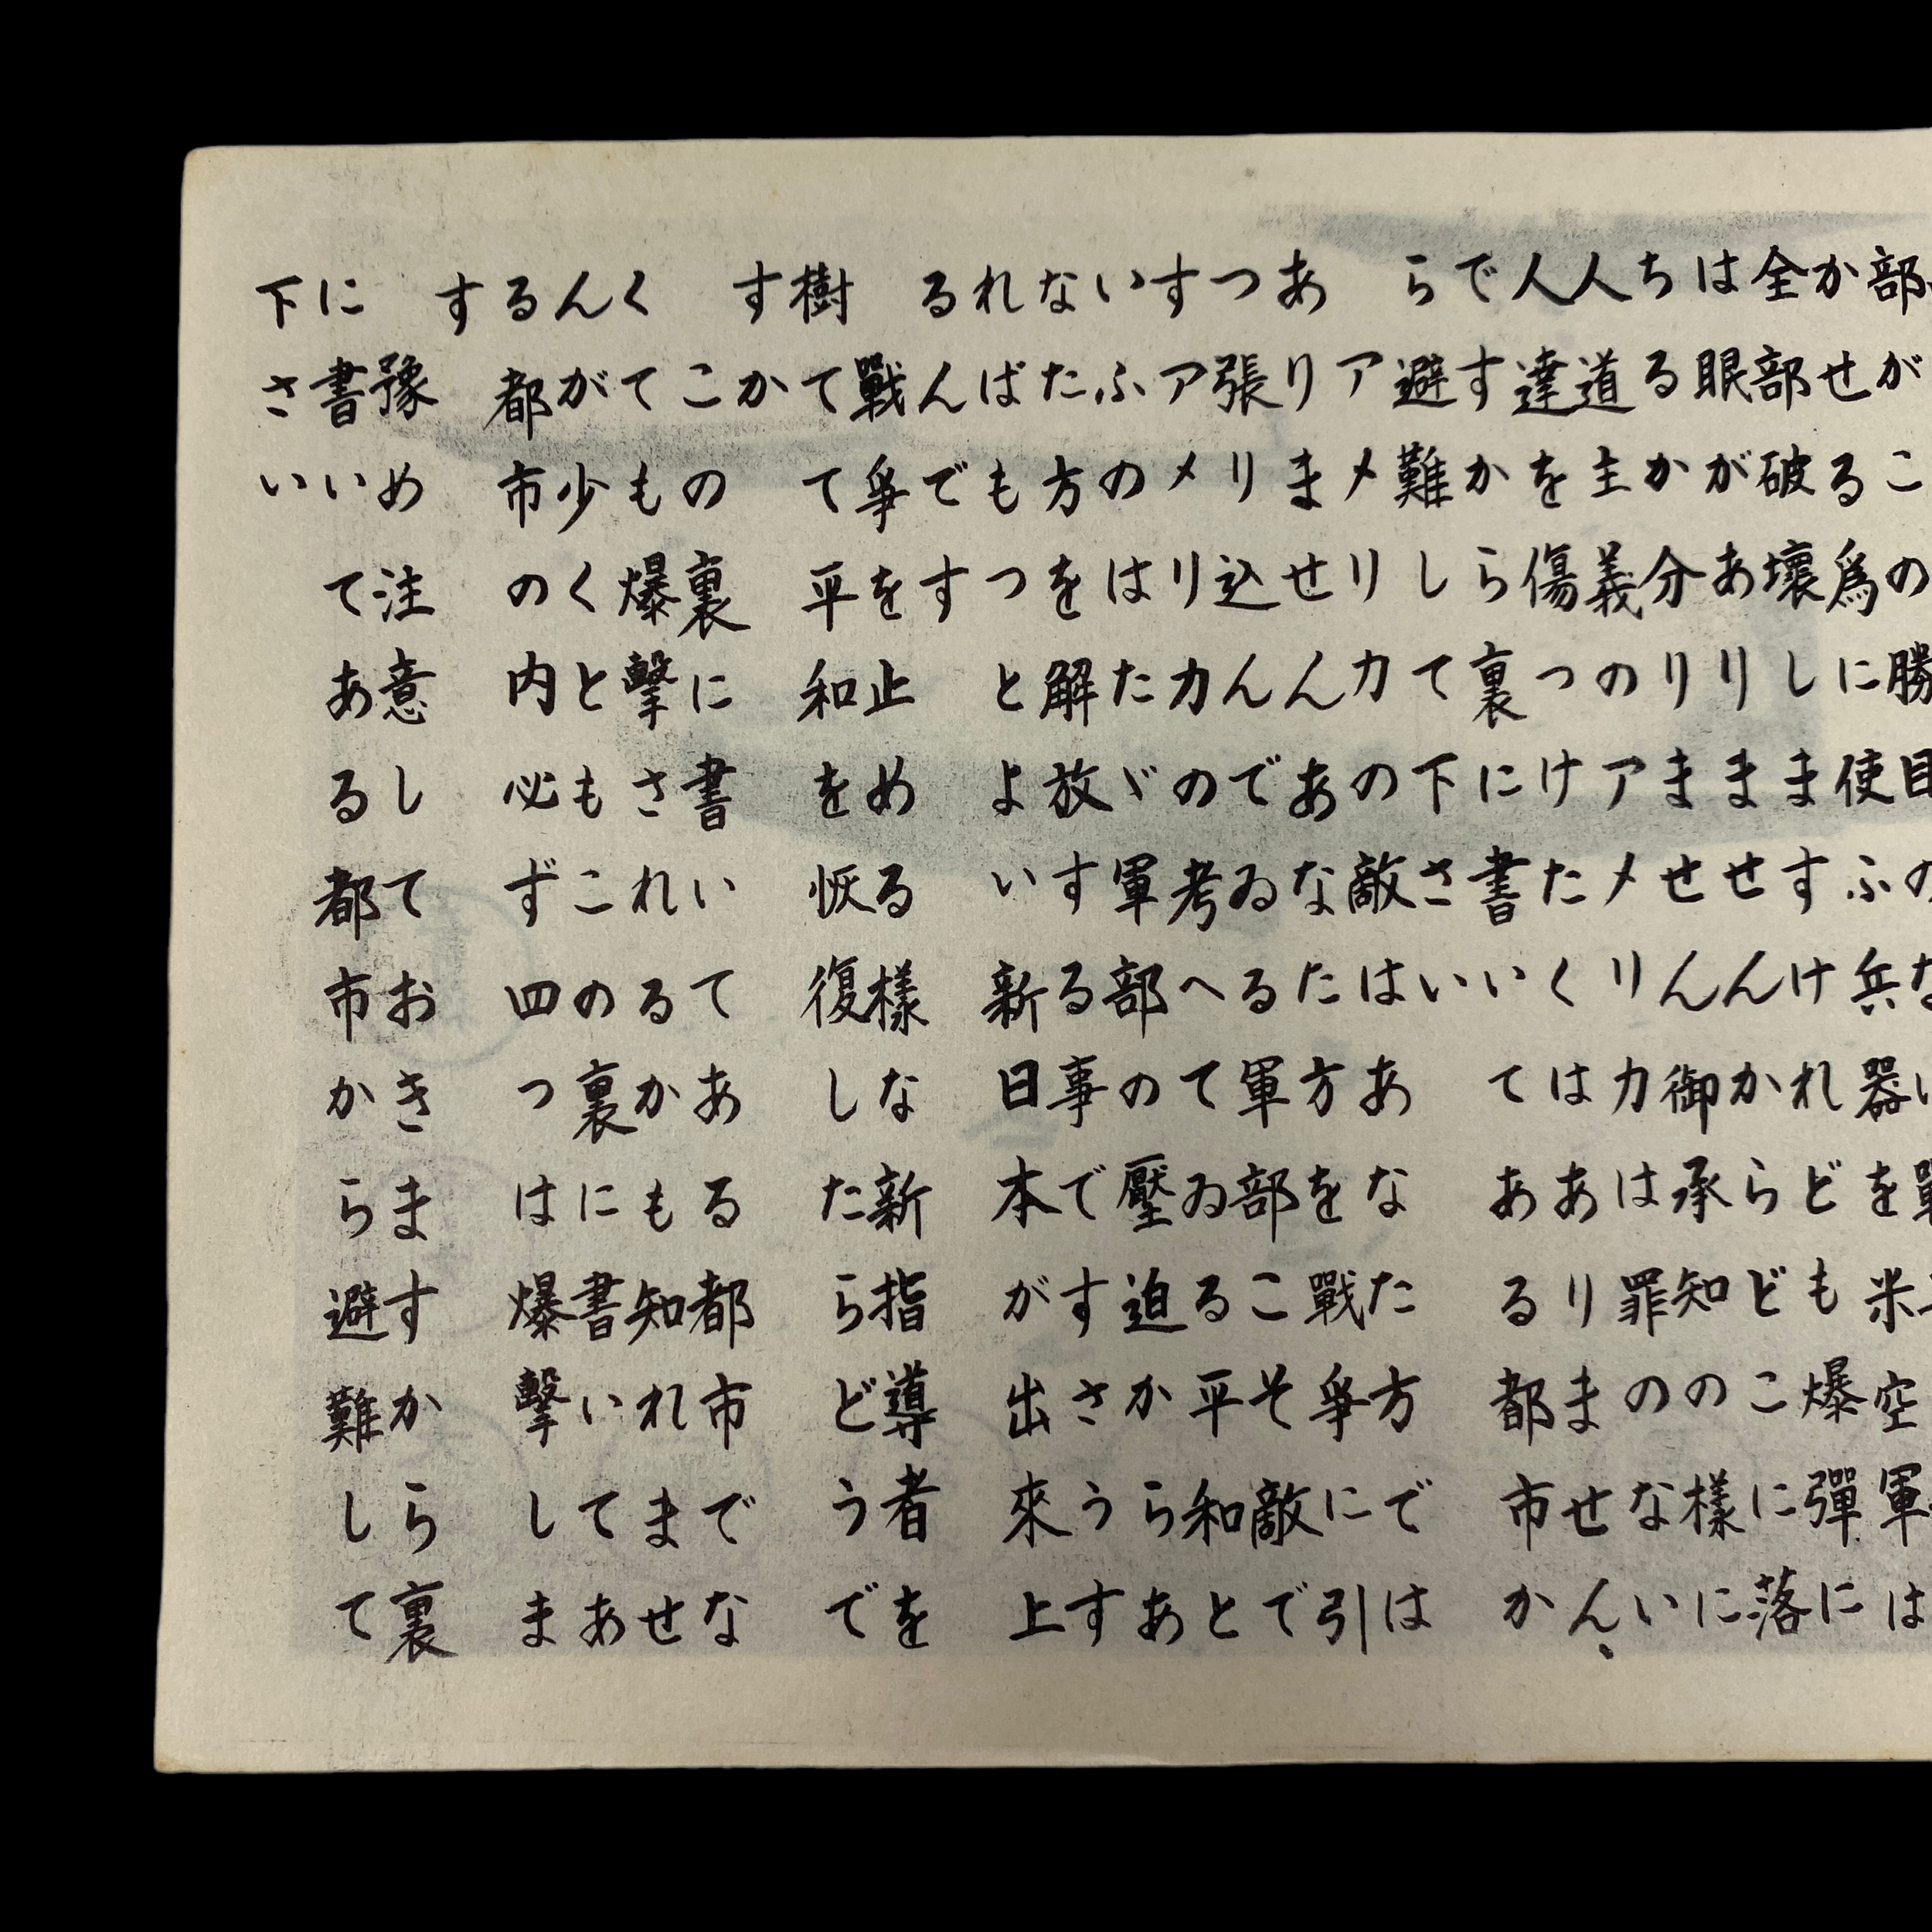 部がこの勝目のない戰
かせる爲に使ふ兵器を米空軍は
全部破壞しますけれども爆彈に
は眼がありませんからどこに落
ちるか分りません御承知の樣に
人道主義のアメリカは罪のない
人達を傷つけたくはありません、
ですから裏に書いてある都市か
ら避難して下さい
アメリカの敵はあなた方では
ありませんあなた方を戰爭に引
つ張り込んでゐる軍部こそ敵で
すアメリカの考へてゐる平和と
いふのはたゞ軍部の壓迫からあ
なた方を解放する事ですさうす
ればもつとよい新日本が出來上
るんです
戰爭を止める樣な新指導者を
樹てて平和を恢復したらどうで
すか
この裏に書いてある都市でな
くても爆擊されるかも知れませ
んが少くともこの裏に書いてあ
る都市の内必ず四つは爆擊しま
す
豫め注意しておきますから裏
に書いてある都市から避難して
下さい